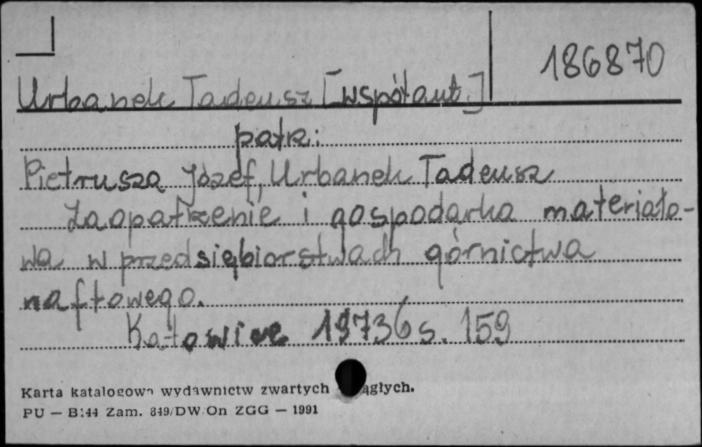 186870
Urbanek Tadeusz [współaut.]
patrz:
Pietrusza Józef, Urbanek Tadeusz
Zaopatrzenie i gospodarka materiało-
wa w przedsiębiorstwach górnictwa
naftowego.
Katowice 1973 s. 159
Karta katalogowa wydawnictw zwartych ciągłych.
PU — B:44 Zam. 849/DW/On ZGG — 1991